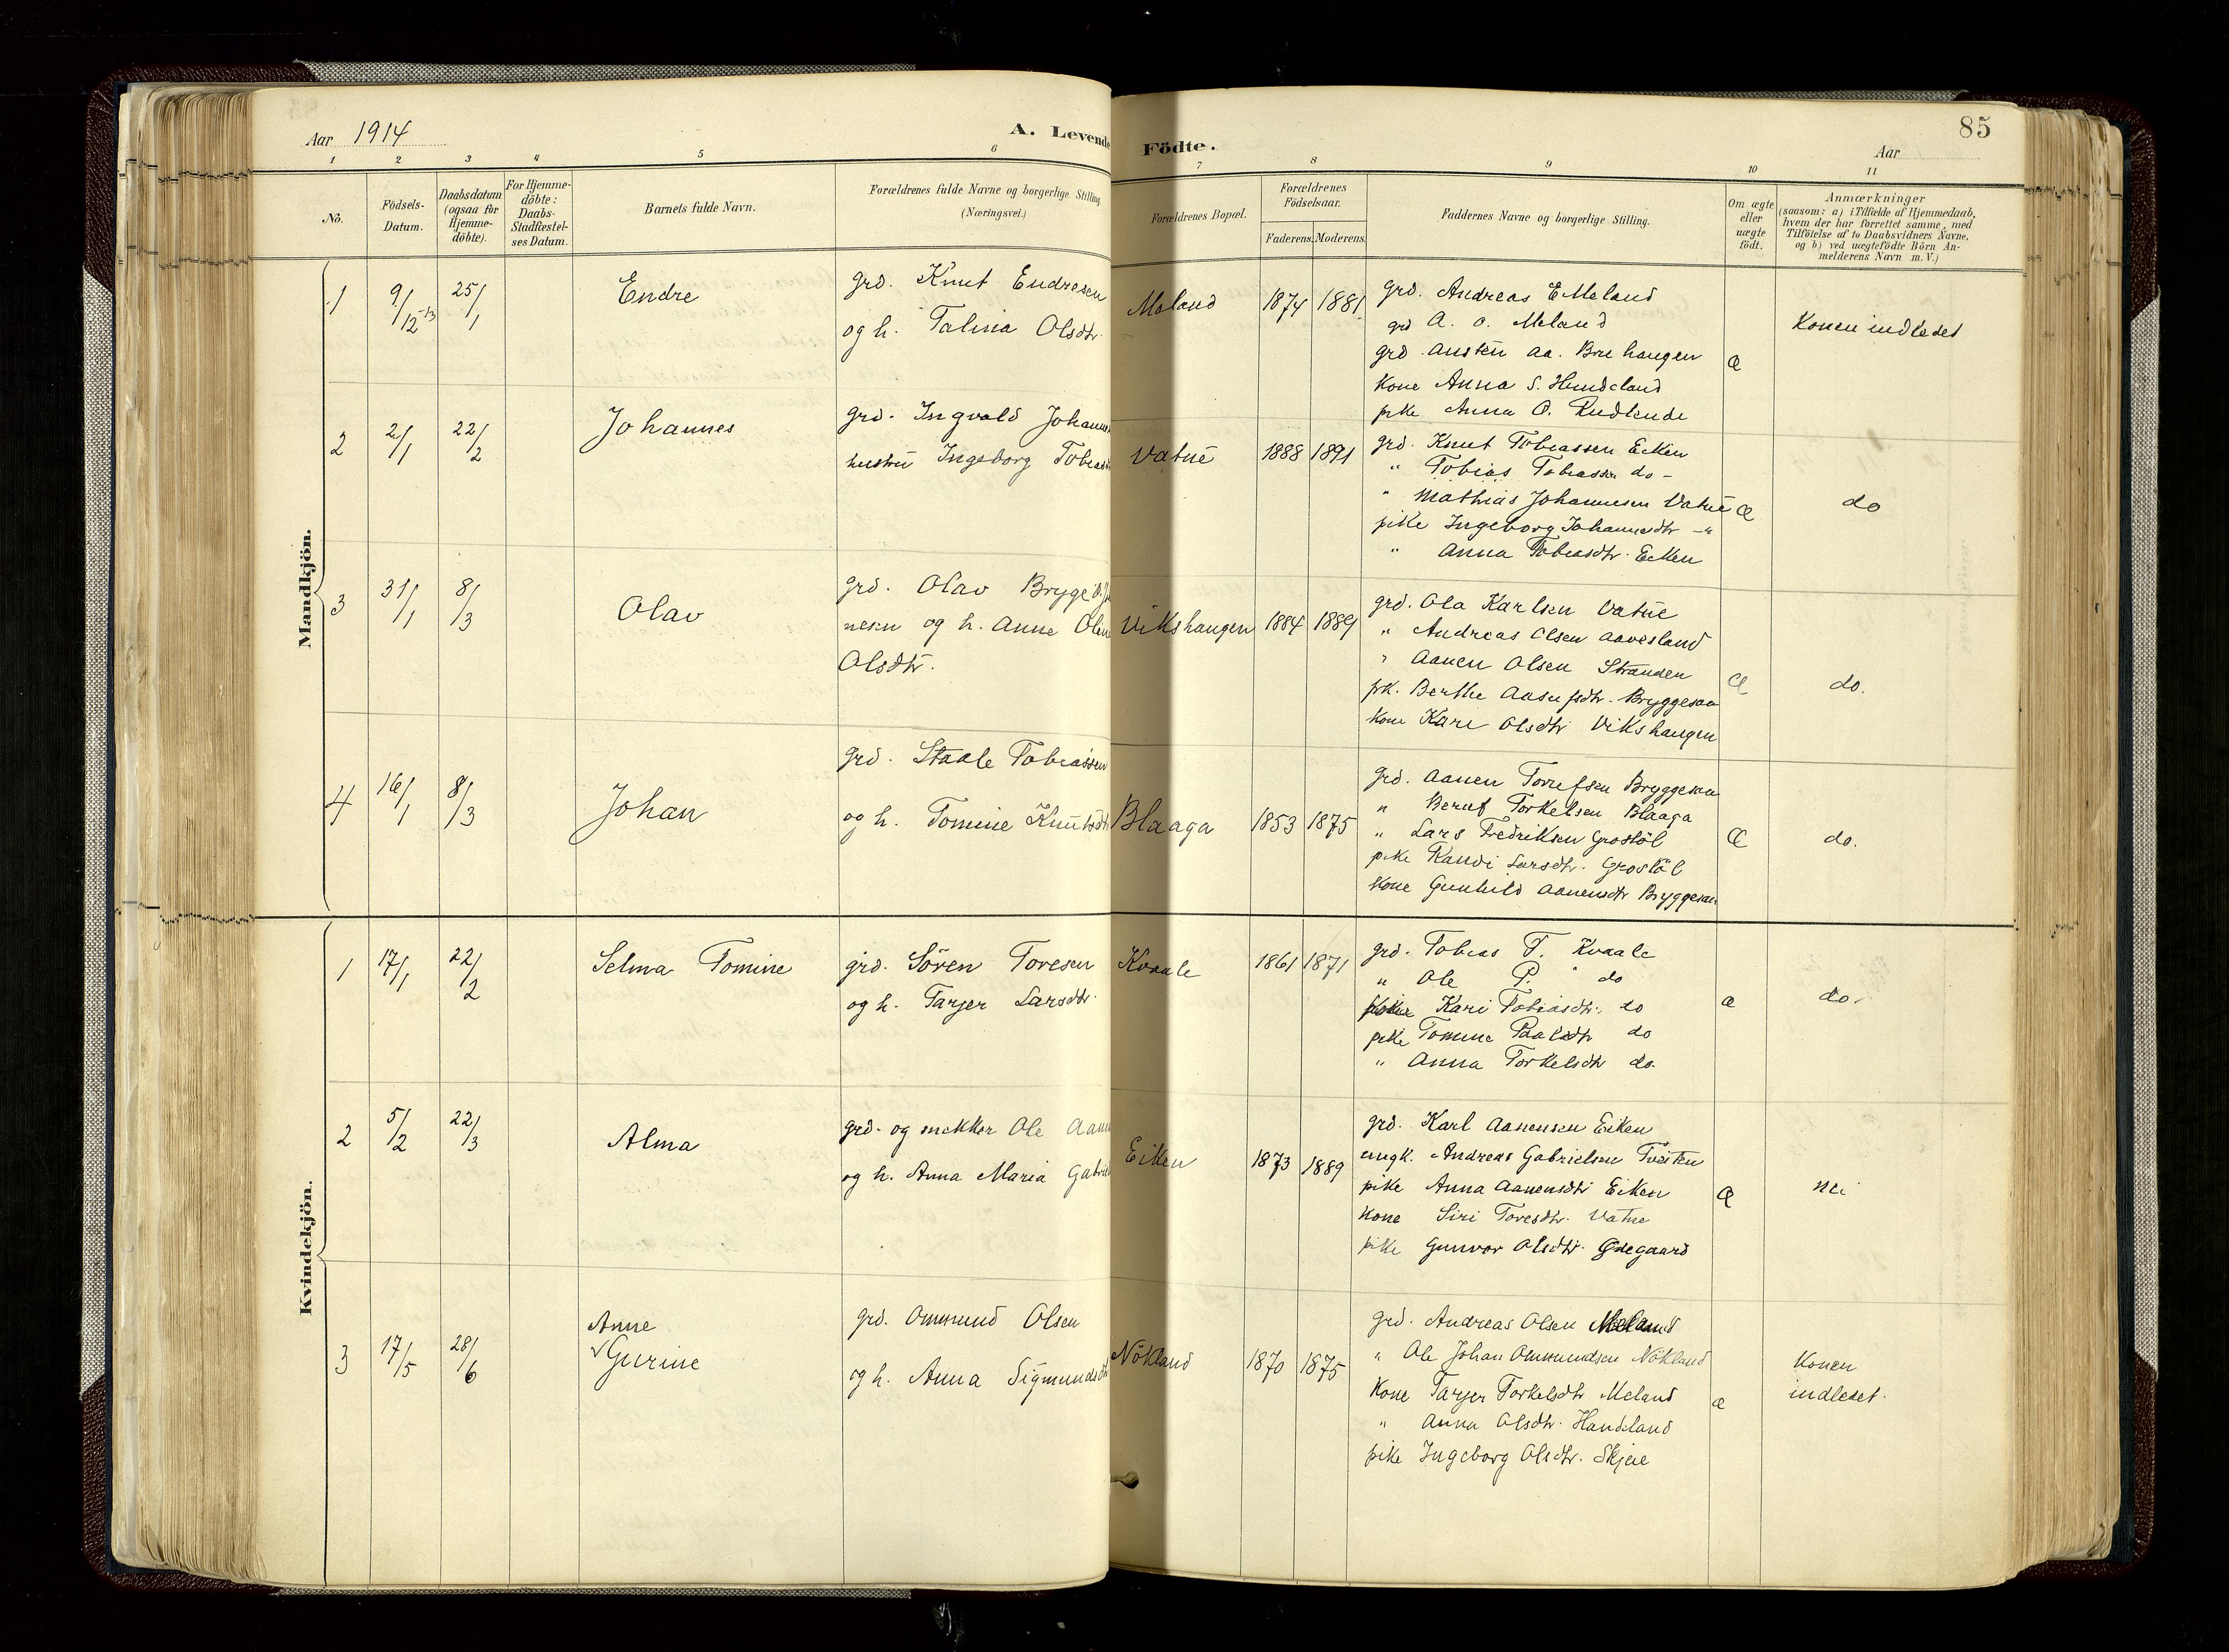 85
Aar 1914
A. Levende Födte.
Aar
1 2 3 4 5 6 7 8 9 10 11
No.
Födsels-Datum.
Daabsdatum (ogsaa för Hjemme-döbte).
For Hjemme-döbte: Daabs-Stadfæstel-ses Datum.
Barnets fulde Navn.
Forældrenes fulde Navne og borgerlige Stilling
(Næringsvei.)
Forældrenes Bopæl.
Forældrenes Födselsaar.
Faderens. Moderens.
Faddernes Navne og borgerlige Stilling.
Om ægte eller uægte födt.
Anmærkninger
(saasom: a) i Tilfælde af Hjemmedaab,
hvem der har forrettet samme, med
Tilföielse af to Daabsvidners Navne,
og b) ved uægtefödte Börn An-
melderens Navn m. V.)
Mandkjön.
1 9/12-13 25/1 Endre
grd. Knut Endresen
og h. Talina Olsdtr.
Meland 1874 1881
grd. Andreas E Meland
grd A. O. Meland
grd. Austen Aa. Brehaugen
Kone Anna S. Hundeland
pike Anna O.
æ
Konen indledet
2 2/1 22/2 Johannes
grd. Ingvald Johann
hustru Ingeborg Tobiasdt
Vatne 1888 1891
grd. Knut Tobiassen Eiken
" Tobias Tobiassen do -
" Mathias Johannesen Vatne
pike Ingeborg Johannesdtr - "
" Anna Tobiasdtr. Eiken
Æ
do
3 31/1 8/3 Olav
grd. Olav
nesen og h. Anne
Olsdtr.
Vikshaugen 1884 1889
grd. Ola Karlsen Vatne
" Andreas Olsen Aavesland
" Aanen Olsen Stranden
pk. Berthe Aasulfsdtr. Bryggesaa
Kone Kari Olsdtr Vikshaugen
Æ
do.
4 16/1 8/3 Johan
grd. Staale Tobiassen
og h. Tomine Knutsdtr
Blaaga 1853 1875
grd. Aanen Torrefsen Bryggesaa
" Berut Torkelsen Blaaga
" Lars Fredriksen Grostöl
pike Randi Larsdtr. Grostöl
Kone Gunhild Aanensdtr Bryggesaa
Æ
do.
Kvindekjön.
1 17/1 22/2 Selma Tomine
grd. Sören Toresen
og h. Tarjer Larsdtr.
Kvaale 1861 1871
grd. Tobias T. Kvaale
" Ole P. do
Kari Tobiasdtr. do
pike Tomine Paalsdtr do
" Anna Torkelsdtr do.
æ
do.
2 5/2 22/3 Alma
grd. og snekker Ole Aan
og h. Anna Maria Gabriel
Eiken 1873 1889
grd. Karl Aanensen Eiken
ungk. Andreas Gabrielsen Tveiten
pike Anna Aanensdtr Eiken
Kone Siri Toresdtr. Vatne
pike Gunvor Olsdtr. Ödegaard
Æ
nei
3 17/5 28/6 Anne
√Gurine
grd. Ommund Olsen
og h. Anna Sigmundsdt
Nökland 1870 1875
grd. Andreas Olsen Meland
" Ole Johan Ommundsen Nökland
Kone Tarjer Torkelsdtr Meland
" Anna Olsdtr. Handeland
pike Ingeborg Olsdtr. Skjeie
æ
Konen
indledet.